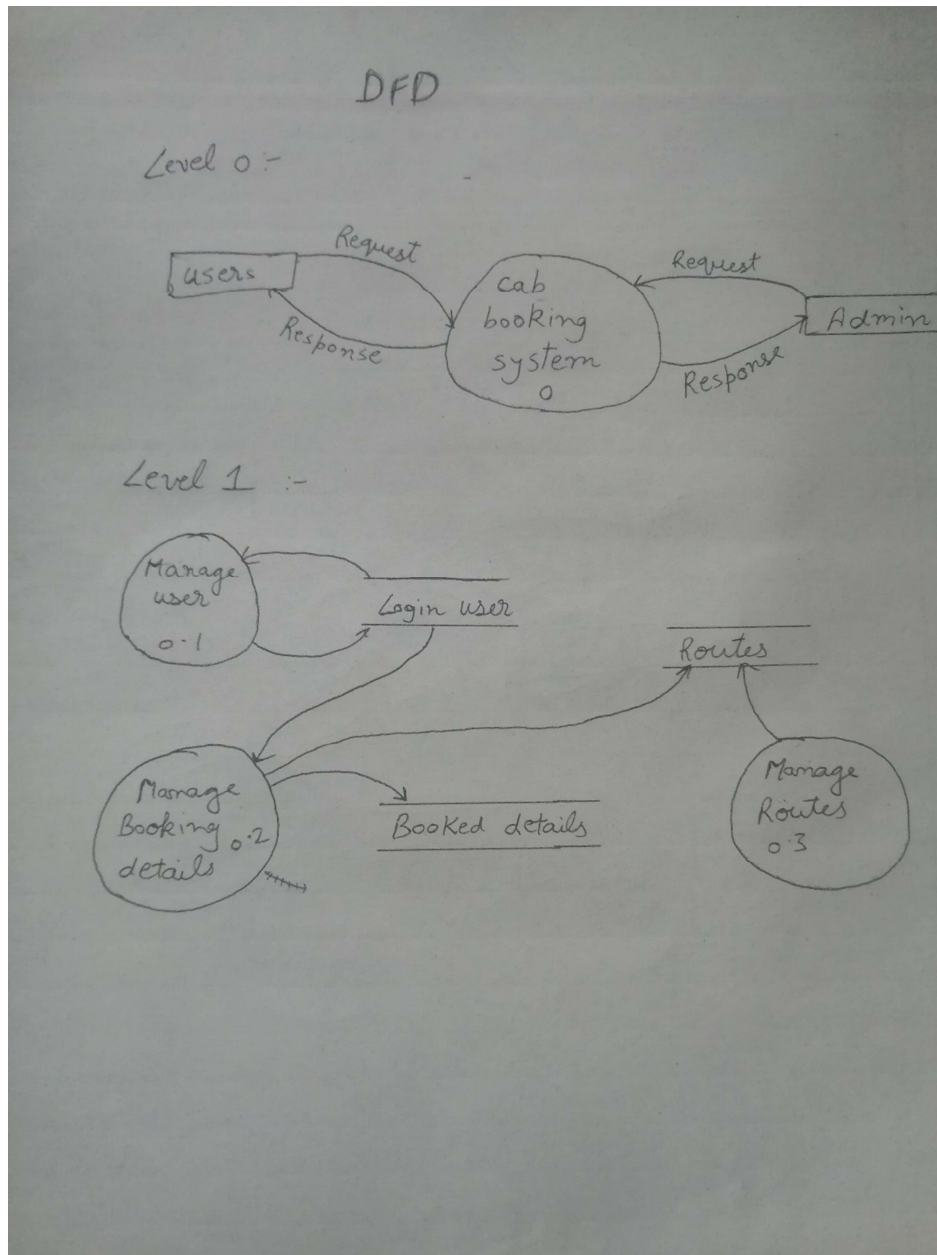 DFD
Level 0 :-
Request
users
Response
cab
booking
system
0
Request
Admin
Response
Level 1 :-
Manage
user
0.1
Login user
Routes
Manage
Booking 0.2
details
Booked details
Manage
Routes
0.3